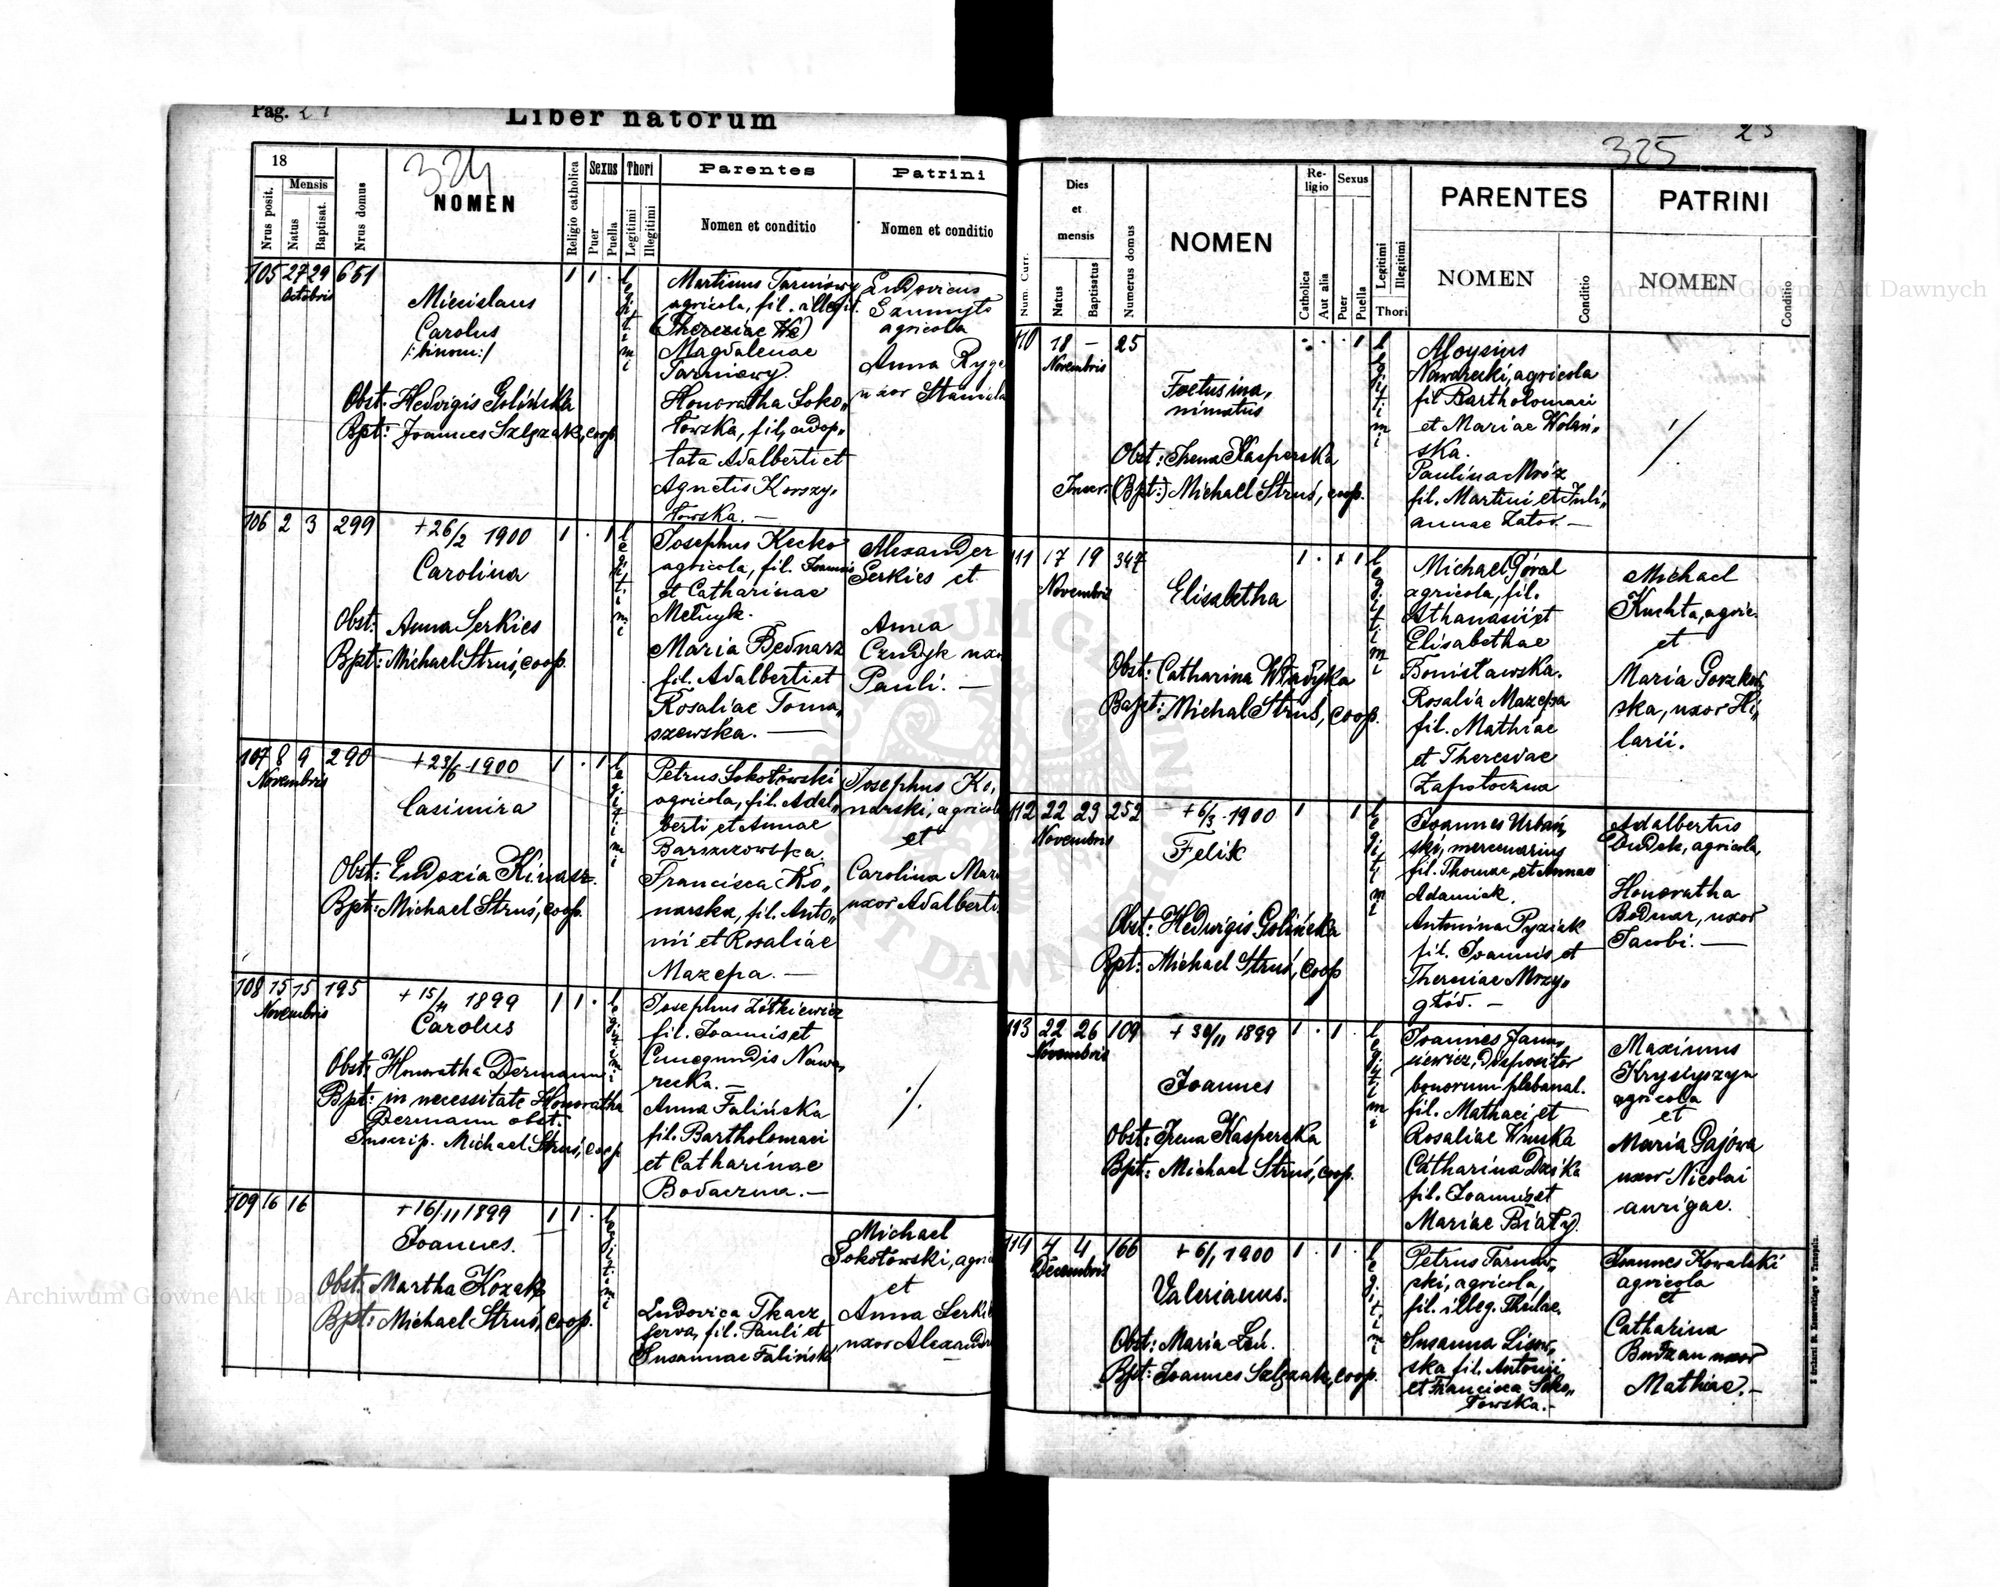 Pag. 24
Liber natorum
18
Nrus posit.
Mensis
Natus
Baptisat.
Nrus domus
324
NOMEN
Religio catholica
Sexus
Puer
Puella
Thori
Legitimi
Illegitimi
Parentes
Nomen et conditio
Patrini
Nomen et conditio
105 27 29 651
Octobris
Miecislaus
Carolus
/:binom:/
Obst: Hedvigis Golińska
Bpt: Joannes Szlęzak, coop.
1 1 .
legitimi
Martinus Tarnowy
agricola, fil. illegit.
Magdalenae
Tarniowy.
Honoratha Soko„
łowska, fil. adop„
tata Adalberti et
Agnetis Korszy„
łowska. —
Ludovicus
Szumyło
agricola
Anna
uxor
106 2 3 299
+ 26/2 1900
Carolina
Obst: Anna Serkies
Bpt: Michael Struś, coop.
1 . 1
legitimi
Josephus Kecko
agricola, fil. Joannis
et Catharinae
Melnyk.
Maria Bednarz
fil. Adalberti et
Rosaliae Toma„
szewska. —
Alexander
Serkies et
Anna
Czudyk
Pauli. —
107 8 9 290
Novembris
+ 23/6 1900
Casimira
Obst: Eudoxia Kinasz.
Bpt: Michael Struś, coop.
1 . 1
legitimi
Petrus Sokołowski
agricola, fil. Adal„
berti et Annae
Barszczowska.
Francisca Ko„
narska, fil. Anto„
nii et Rosaliae
Mazepa. —
Josephus Ko„
narski, agricola
et
Carolina
uxor Adalberti
108 15 15 195
Novembris
+ 15/11 1899
Carolus
Obst: Honoratha Dermann
Bpt: in necessitate Honoratha
Dermann obst.
Inscrip. Michael Struś, coop
1 1 .
legitimi
Josephus Żółkiewicz
fil. Joannis et
Cunegundis Nawa„
recka. —
Anna Falińska
fil. Bartholomaei
et Catharinae
Bodaczna. —
109 16 16
+ 16/11 1899
Joannes.
Obst: Martha Kozak
Bpt: Michael Struś, coop.
1 1
legitimi
Ludovica Tkacz
serva, fil. Pauli et
Susannae Falińska
Michael
Sokołowski,
et
Anna
uxor
325
Num. Curr.
Dies
et
mensis
Natus
Baptisatus
Numerus domus
NOMEN
Re-
ligio
Catholica
Aut alia
Sexus
Puer
Puella
Legitimi
Illegitimi
Thori
PARENTES
NOMEN
Conditio
PATRINI
NOMEN
Conditio
110 18 — 25
Novembris
Foetus ina„
nimatus
Obst: Irena Kasperska
Inscr. (Bpt:) Michael Struś, coop.
legitimi
Aloysius
Nawarecki, agricola
fil Bartholomaei
et Mariae Wolań„
ska.
Paulina Mróz
fil. Martini et Juli„
annae Zator. —
111 17 19 347
Novembris
Elisabetha
Obst: Catharina Władyka
Bapt: Michal Struś, coop.
legitimi
Michael Góral
agricola, fil.
Athanasii et
Elisabethae
Bonisławska.
Rosalia Mazepa
fil. Mathiae
et Theresiae
Zapotoczna
Michael
Kuchta, agric.
et
Maria
ska, uxor Hi„
larii.
112 22 23 252
Novembris
+ 6/3 1900
Felix
Obst: Hedvigis Golińska
Bpt: Michael Struś, coop
1 1
legitimi
Joannes Urbań„
ski, mercenarius
fil. Thomae, et Annae
Adamiak.
Antonina Pyziak
fil. Joannis et
Theresiae Mrzy„
głód. —
Adalbertus
Dudek, agricola,
Honoratha
Bodnar, uxor
Jacobi. —
113 22 26 109
Novembris
+ 30/11 1899
Joannes
Obst: Irena Kasperska
Bpt: Michael Struś, coop.
1 . 1 .
legitimi
Joannes Janu„
siewicz, dispositor
bonorum plebanal.
fil. Mathaei et
Rosaliae
Catharina
fil. Joannis et
Mariae Biały.
Maximus
Kryszyszyn
agricola
et
Maria Gajówa
uxor Nicolai
aurigae.
114 4 4 166
Decembris
+ 6/1 1900
Valerianus.
Obst: Maria Łań.
Bpt: Joannes Szlęzak, coop.
1 . 1 .
legitimi
Petrus Tarnow„
ski, agricola,
fil. illeg. Theclae.
Susanna Lisow„
ska fil. Antonii
et Francisca Soko„
łowska. —
Joannes Kowalski
agricola
et
Catharina
Budzan uxor
Mathiae. —
Archiwum Główne Akt Dawnych
Archiwum Główne Akt Dawnych